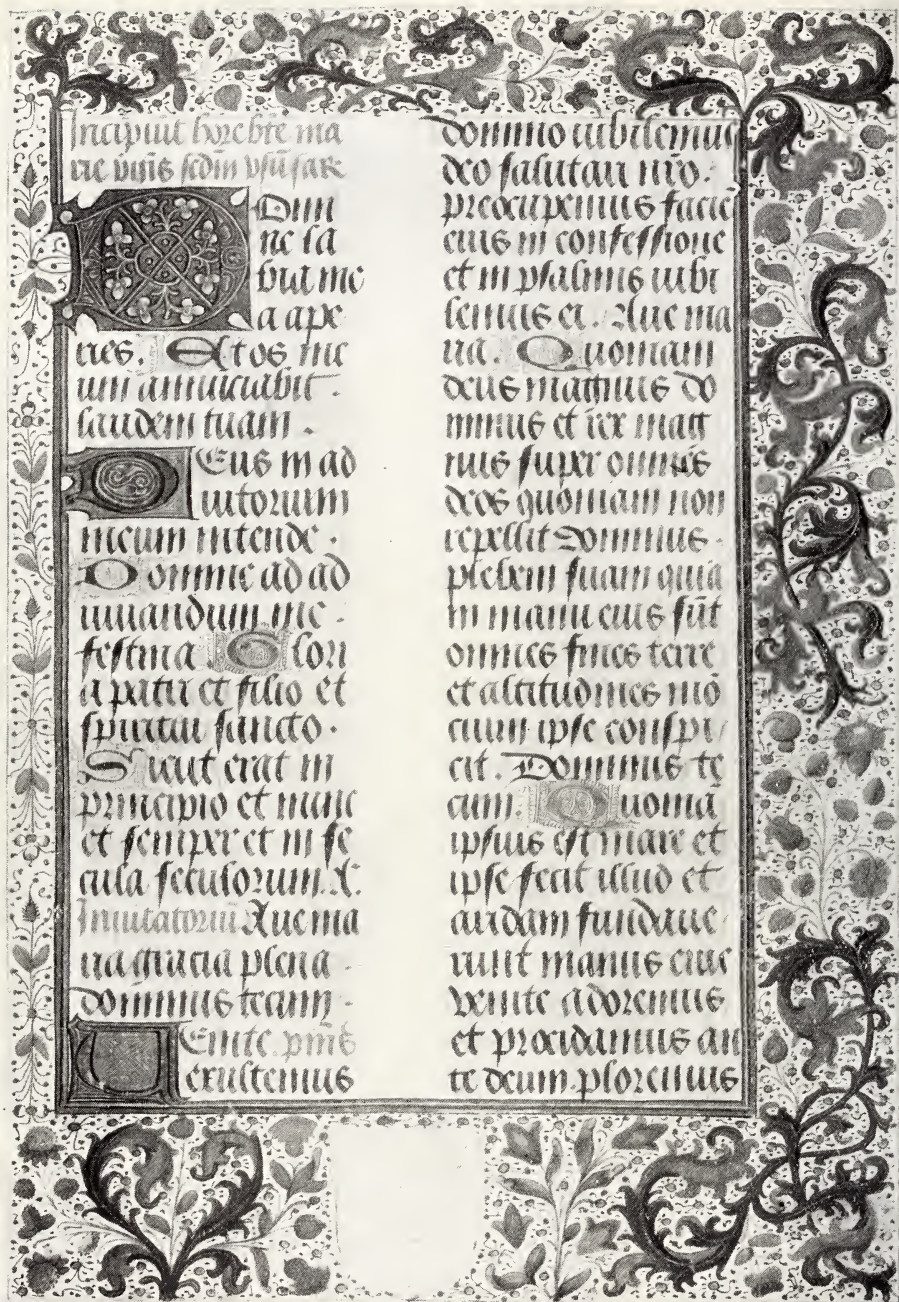 Incipiūt hore bt̄e ma
rie v̄gĩs sc̄dm vsū sar̄
Domi
ne la
bia me
a ape
ries. Et os me
um annunciabit .
laudem tuam .
Deus in ad
iutorium
meum intende .
Domine ad ad
iuuandum me .
festina . Glori
a patri et filio et
spiritui sancto .
Sicut erat in
principio et nunc
et semper et in se
cula seculorum. A.
Inuitatoriū Aue ma
ria gracia plena .
dominus tecum .
Uenite. p̄mꝰ
exultemus
domino iubilemus
deo salutari nr̄o .
preocupemus faciē
eius in confessione
et in psalmis iubi
lemus ei . Aue ma
ria . Quoniam
deus magnus do
minus et rex mag
nus super omnes
deos quoniam non
repellit dominus .
plebem suam quia
in manu eius sūt
omnes fines terre
et altitudines mō
cium ipse conspi
cit . Dominus te
cum . Quoniā
ipsius est mare et
ipse fecit illud et
aridam fundaue
runt manus eius
venite adoremus
et procidamus an
te deum ploremus